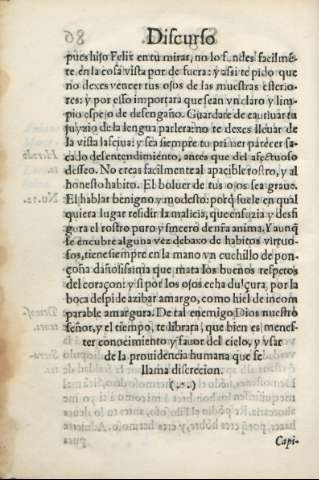 Discurso
pues hijo Felix en tu mirar, no lo fundes facilmẽ-
te en la cosa vista por de fuera: y assi te pido que
no dexes vencer tus ojos de las muestras esterio-
res: y por esso importara que sean vn claro y lim-
pio espejo de desengaño. Guardare de cautiuar tu
juyzio de la lengua parlera: no te dexes lleuar de
la vista lasciua: y sea siempre tu primer parecer sa-
cado del entendimiento, antes que del afectuoso
desseo. No creas facilmente al apacible rostro, y al
honesto habito. El boluer de tus ojos sea graue.
El hablar benigno y modesto: porq̃ suele en qual
quiera lugar residir la malicia, que ensuzia y desfi
gura el rostro puro y sincero de nr̃a anima. Y aunq̃
se encubre alguna vez debaxo de habitos virtuo-
sos, tiene siempre en la mano vn cuchillo de pon-
çoña dañosissima que mata los buenos respetos
del coraçon: y si por los ojos echa dulçura, por la
boca despide azibar amargo, como hiel de incom
parable amargura. De tal enemigo Dios nuestro
señor, y el tiempo, te librara, que bien es menes-
ter conocimiento y fauor del cielo, y vsar
de la prouidencia humana que se
llama discrecion.
(.·.)
Capi-